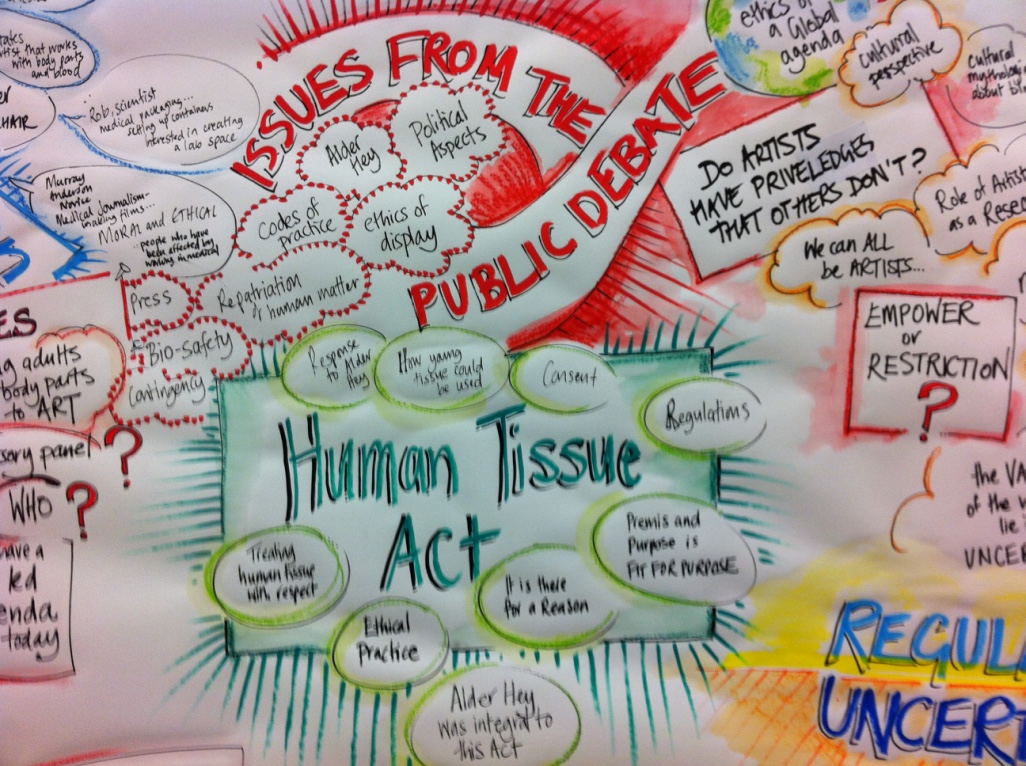 artist that works
with body parts
and blood
CHAIR
Rob, scientist
medical packaging...
setting up containers
interested in creating
a lab space
Murray
Anderson
Novice
Medical Journalism-
making films...
MORAL and ETHICAL
...people who have
been affected by
working in medical
ISSUES FROM THE
PUBLIC DEBATE
Alder
Hey
Political
Aspects
Codes of
practice
ethics of
display
Press
Repatriation
or human matter
Bio-safety
Contingency
ethics of
a Global
agenda
cultural
perspective
cultural
mythology
about
DO ARTISTS
HAVE PRIVELEDGES
THAT OTHERS DON'T?
Role of Artist
as a
We can ALL
be ARTISTS...
EMPOWER
or
RESTRICTION
?
ES
adults
body parts
to ART
panel
?
WHO ?
have a
led
enda
today
Response
to Alder
Hey
How young
tissue could
be used
Consent
Regulations
Human Tissue
Act
Treating
human tissue
with respect
Ethical
Practice
It is there
for a Reason
Premis and
Purpose is
FIT FOR PURPOSE
Alder Hey
was integral to
this Act
the VA
of the w
lie
UNCE
REGUL
UNCERT